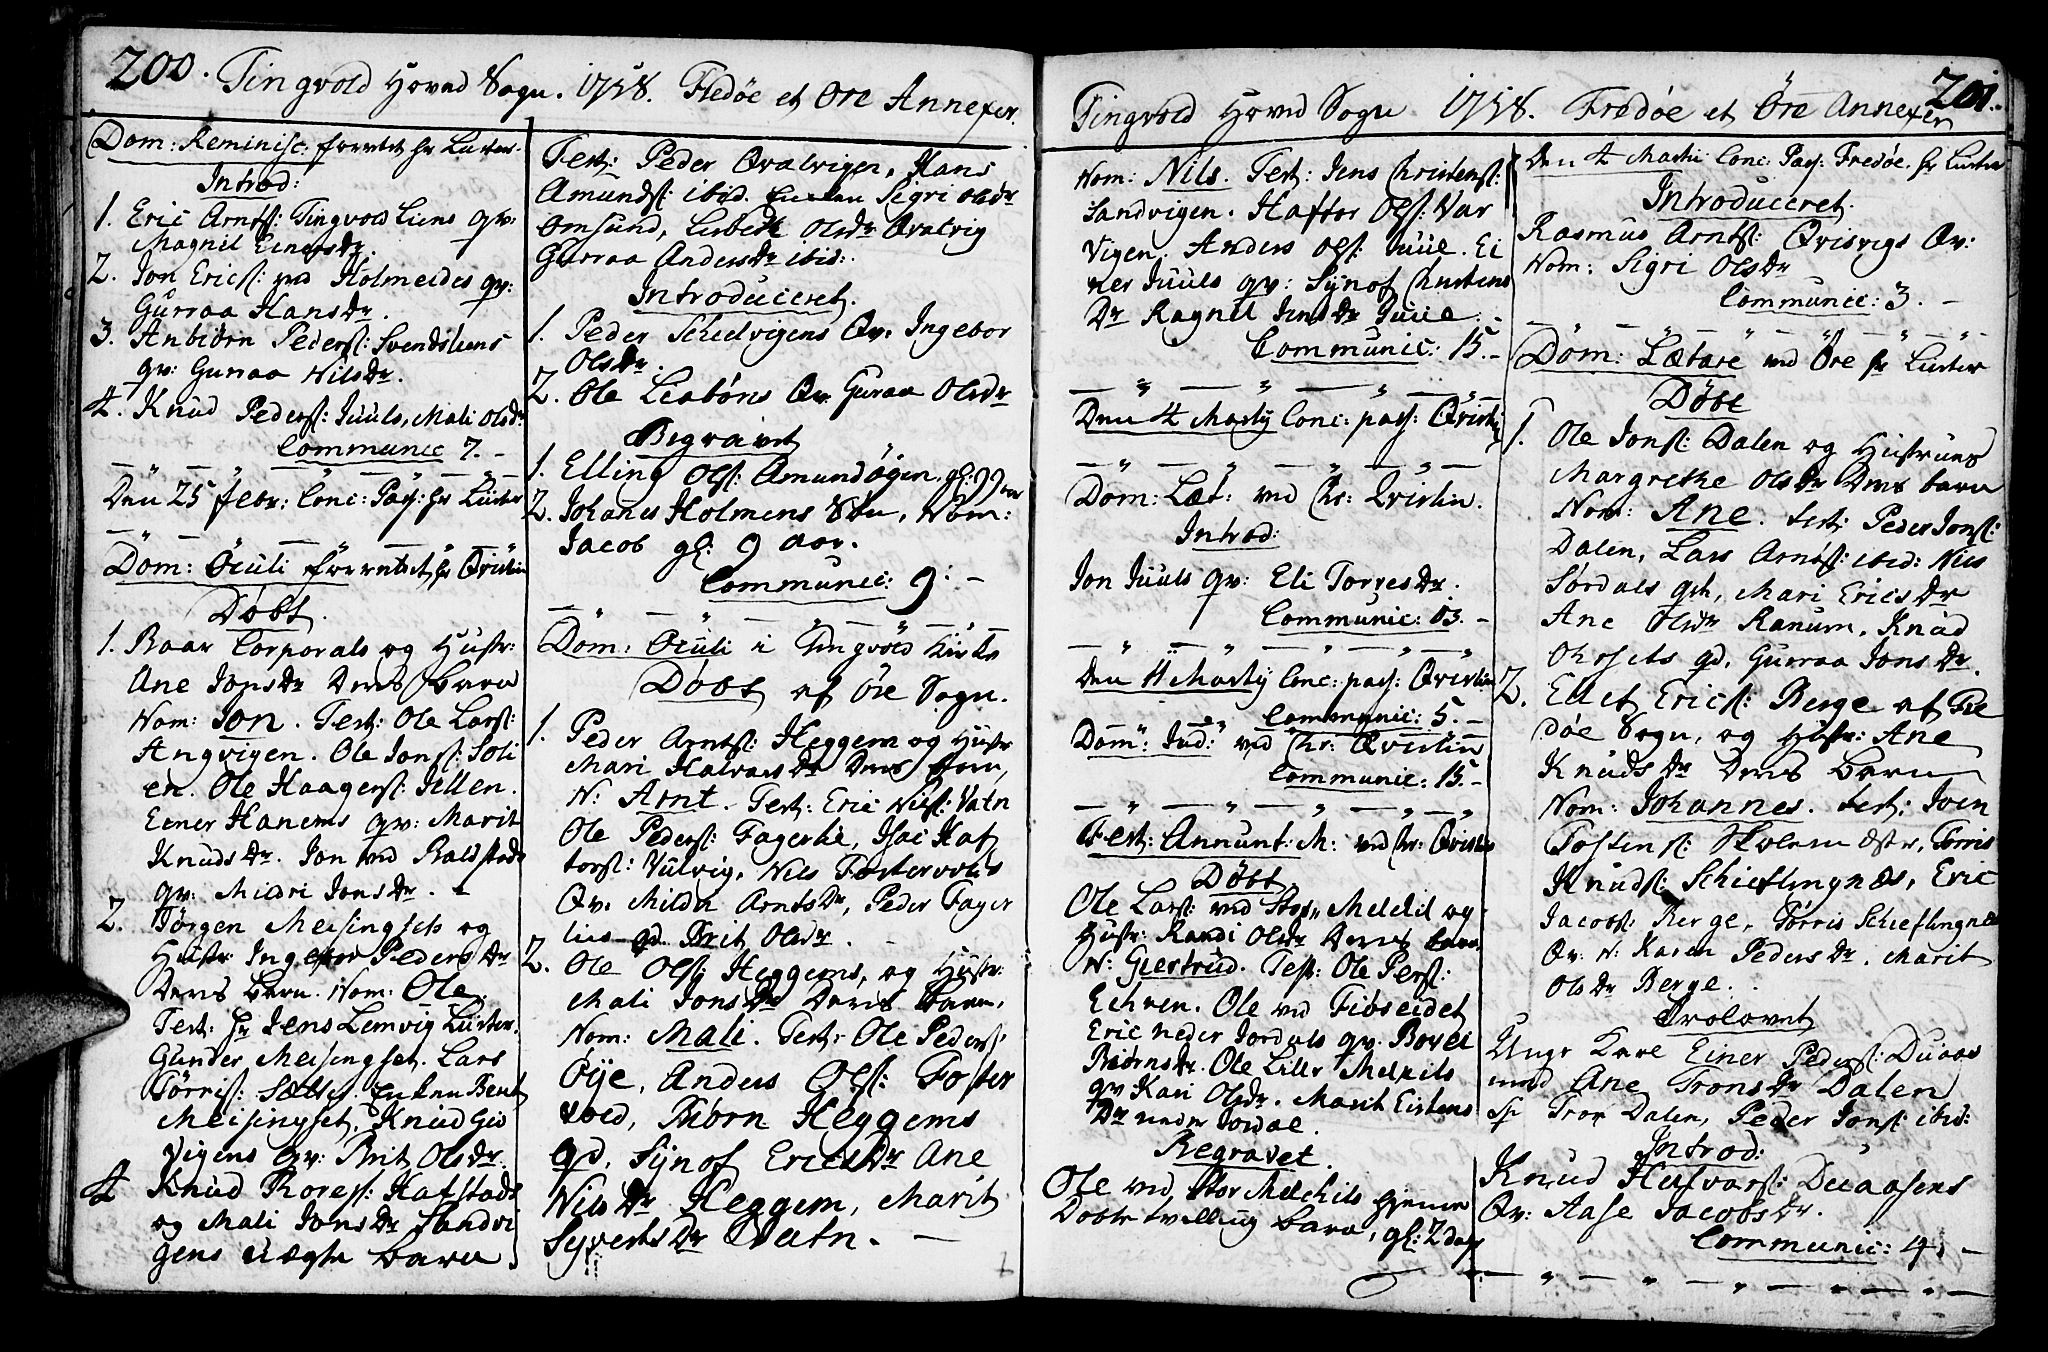 200. Tingvold Hoved Sogn. 1758. Fredøe et Øre Annexer.
Dom: Reminisc: forrettet hr Lüster.
Introd:
1. Eric Arntſ: Tingvold Liens qv:
Magnil Einersdr.
2. Jon Ericſ: ved Holmeides qv:
Gurraa Hansdr.
3. Anbiørn Pederſ: Svendsliens
qv: Guraa Nilsdr.
4. Knud Pederſ: Juuls, Mali Olsdr
Communic 7. -
Den 25 Febr: Conc: Paſ: hr Lüster
Dom: Oculi forrettet hr Qvistin
Døbt.
1. Baar Corporals og Hustr:
Ane Jonsdr Deres Barn
Nom: Jon. Test: Ole Larſ:
Angvigen. Ole Jonſ: Soli
en. Ole Haagenſ: Jellen.
Einer Hanems qv: Marit
Knudsdr. Jon ved Raldstads
qv: Mildri Jonsdr.
2. Jørgen Meisingsets og
Hustr: Ingebor Pedersdr
Deres Barn. Nom: Ole
Test: hr Jens Lemvig Lüster.
Gunder Meisingset. Lars
Tørriſ: Enken Berit
Meisingset, Knud Gid
Vigens qv: Brit Olsdr.
4 Knud Roreſ: Hafstads
og Mali Jonsdr Sandvi
gens uægte Barn
Test: Peder Qvalvigen, Hans
Amundſ: ibid. Enken Sigri Olsdr
Omsund, Lisbeth Olsdr Qvalvig
Gurraa Andersdr ibid:
Introduceret.
1. Peder Schedvigens Qv. Ingebor
Olsdr.
2. Ole Leabøns Qv Guraa Olsdr
Begravet
1. Elling Olſ: Amundøgen. gl: 77 aar
2. Johanes Holmens Søn, Nom:
Jacob gl: 9 aar.
Communic: 9: -
Dom: Oculi i Tingvold Kirke
Døbt af Øre Sogn.
1. Peder Arntſ: Heggem og Hustr
Mari Halvorsdr Deres Barn,
N: Arnt. Test: Eric Nilſ: Vatn
Ole Pederſ: Fagerlie, Isac Haf
torſ: Vulvig, Nils Fostervolds
Qv. Mildri Arntsdr, Peder Fager
lies qd. Brit Olsdr.
2. Ole Olſ: Heggems, og Hustr:
Mali Jonsdr Deres Barn,
Nom: Mali. Test: Ole Pederſ:
Øye, Anders Olſ: Foster
vold, Biørn Heggems
qd, Synof Ericsdr Ane
Nilsdr Heggem, Marit
Syvertsdr Vatn. -
Tingvold Hoved Sogn 1758. Fredøe et Øre Annexer 201.
Nom: Nils. Test: Jens Christenſ:
Sandvigen. Haftor Olſ: Var
Vigen. Anders Olſ: Juul. Ei
ner Juuls qv: Synof Christens
Dr Ragnil Jensdr Juul. -
Communic: 15. -
Den 4 Martij Conc: paſ: Qvistin
Dom: Læt: ved hr: Qvistin.
Introd:
Jon Juuls qv: Eli Torresdr.
Communic: 03. -
Den 11 Martij Conc: paſ: Qvistin
Communic: 5. -
Dom: Jud: ved hr: Qvistin
Communic: 15. -
Fest: Annunt: M: ved hr: Qvistin
Døbt
Ole Larſ: ved Stor Melchil og
Hustr: Randi Olsdr Deres barn
N: Giertrud. Test: Ole Perſ:
Echren. Ole ved Fiøseidet
Eric neder Jordals qv: Borel
Biørnsdr. Ole Lille Melkils
qv Kari Olsdr. Marit Eistens
Dr neder Jordal.
Begravet.
Ole ved Stor Melchils hjemme
Døbte tvilling barn, gl: 2 dag
Den 4 Martii Conc: Paſ: Fredøe. hr Lüster
Introduceret.
Rasmus Arntſ: Qvisvigs Qv:
Nom: Sigri Olsdr
Communic: 3. -
Dom: Lætare ved Øre hr Lüster
Døbt
1. Ole Jonſ: Dalen og Hustrues
Margrethe Olsdr Deres barn
Nom: Ane. Test: Peder Jonſ:
Dalen, Lars Arntſ: ibid: Nils
Sørdals qd, Mari Ericsdr
Ane Olsdr Ranum, Knud
qd, Gurraa Jonsdr.
2. Ellef Ericſ: Berge af Fre
døe Sogn, og Hustr: Ane
Knudsdr Deres Barn
Nom: Johannes. Test: Joen
Tostenſ: Skolemester, Tørris
Knudſ: Schieflingnæs, Eric
Jacobſ: Berge, Tørris Schieflingnes
Qv: N: Karen Pedersdr. Marit
Olsdr Berge.
Trolovet
Unge Karl Einer Pederſ: Duaas
med Ane Tronsdr Dalen
Sp Tron Dalen, Peder Jonſ: ibid:
Introd:
Knud Halvorſ: Duaasens
Qv: Aase Jacobsdr.
Communic: 4. -